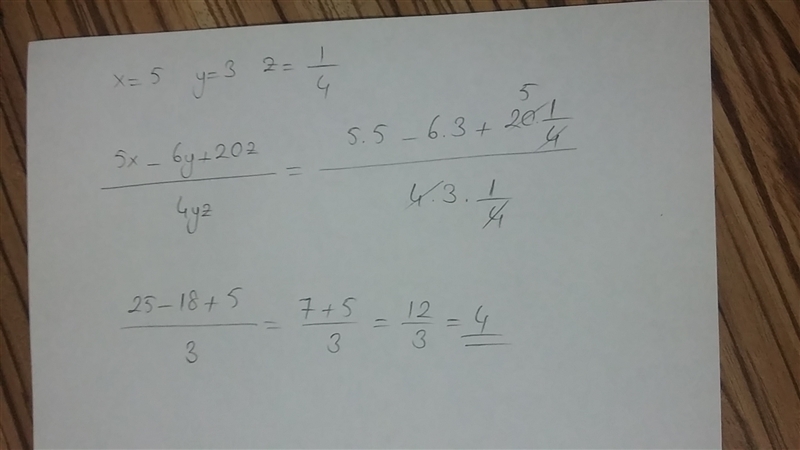 x=5 y=3 z= 1/4
(5x-6y+20z)/(4yz) = (5.5-6.3+20.1/4)/(4.3.1/4)
5
(25-18+5)/3 = (7+5)/3 = 12/3 = 4